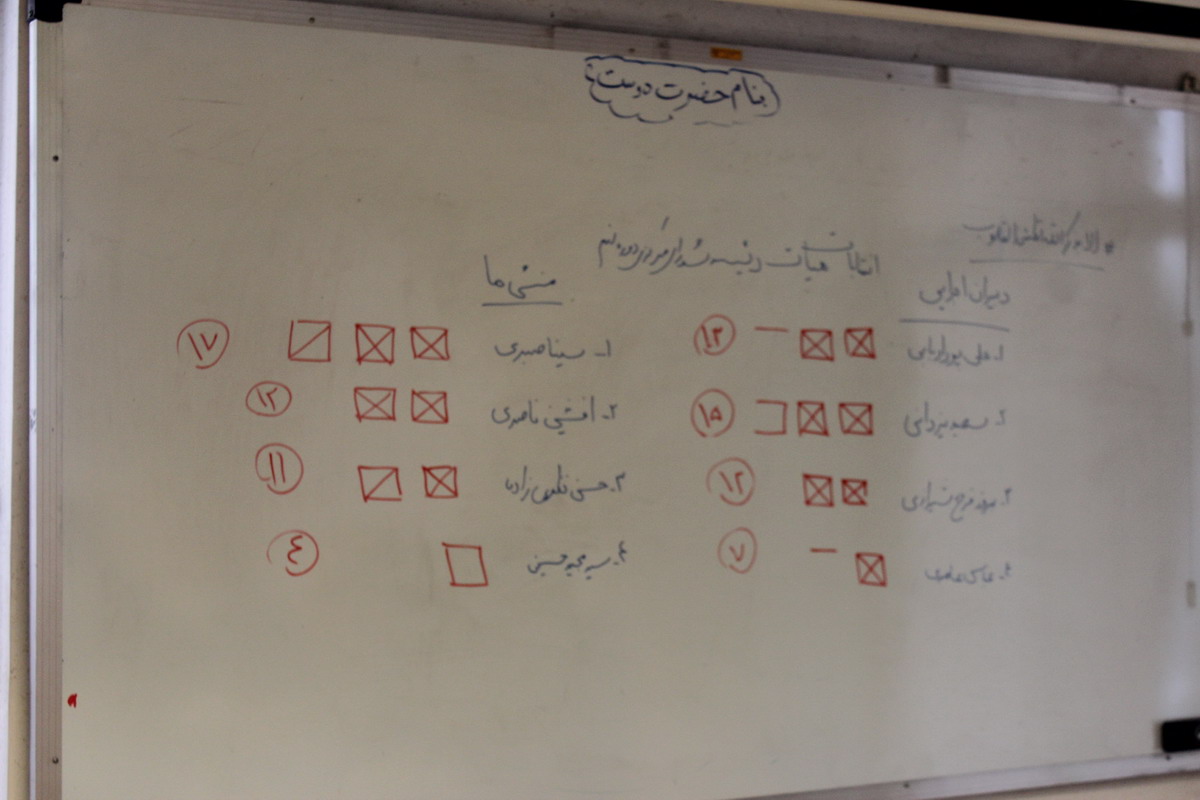 بنام حضرت دوست
* الا بذکر الله تطمئن القلوب
انتخابات هیات رئیسه شورای مرکزی دوره نهم
دبیران اجرایی
۱. علی
۱۳
۲. سعید یزدانی
۱۵
۳. فرخ شیرازی
۱۲
۴. عباس
۷
منشی ها
۱. سینا صبری
۱۷
۲. افشین ناصری
۱۲
۳. حسن زاده
۱۱
٤. سید مجید حسینی
٤